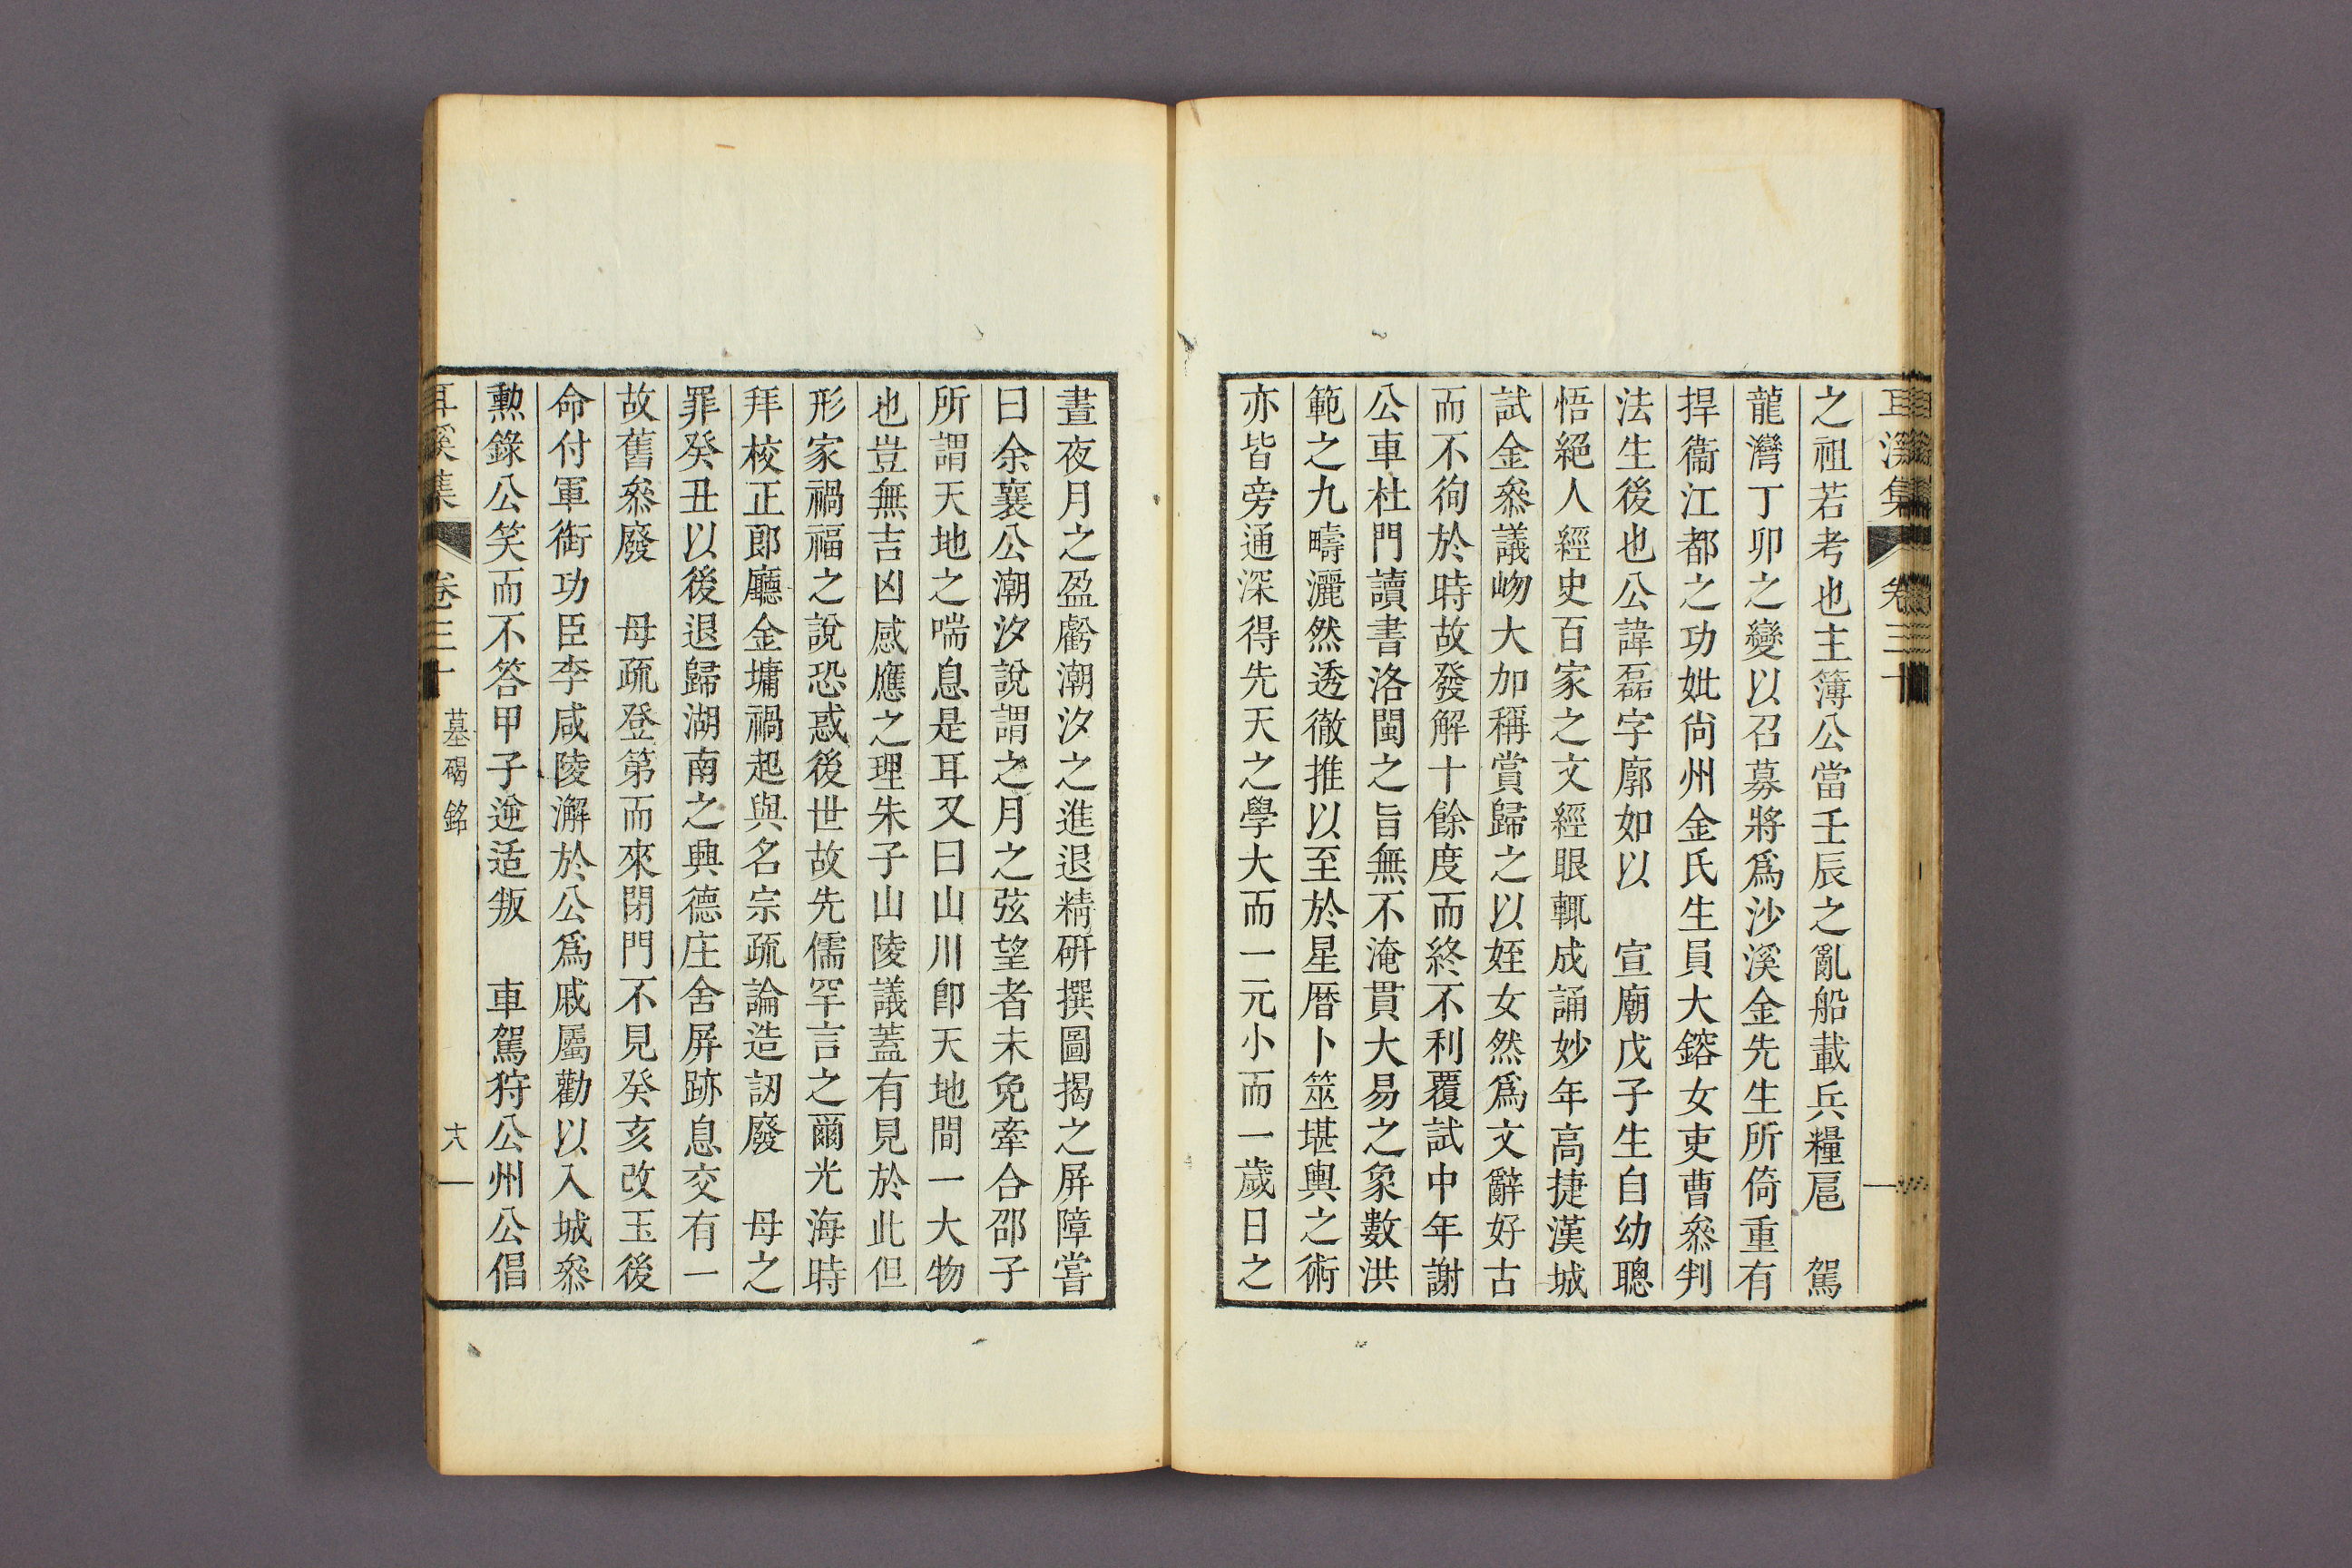 耳溪集 卷三十
之祖若考也主簿公當壬辰之亂船載兵糧扈 駕
龍灣丁卯之變以召募將爲沙溪金先生所倚重有
捍衞江都之功妣尙州金氏生員大鎔女吏曹叅判
法生後也公諱磊字廓如以 宣廟戊子生自幼聰
悟絕人經史百家之文經眼輒成誦妙年高捷漢城
試金叅議岉大加稱賞歸之以姪女然爲文辭好古
而不徇於時故發解十餘度而終不利覆試中年謝
公車杜門讀書洛閩之旨無不淹貫大易之象數洪
範之九疇灑然透徹推以至於星曆卜筮堪輿之術
亦皆旁通深得先天之學大而一元小而一歲日之
晝夜月之盈虧潮汐之進退精硏撰圖揭之屛障嘗
曰余襄公潮汐說謂之月之弦望者未免牽合邵子
所謂天地之喘息是耳又曰山川卽天地間一大物
也豈無吉凶感應之理朱子山陵議蓋有見於此但
形家禍福之說恐惑後世故先儒罕言之爾光海時
拜校正郎廳金墉禍起與名宗疏論造訒廢 母之
罪癸丑以後退歸湖南之興德庄舍屛跡息交有一
故舊叅廢 母疏登第而來閉門不見癸亥改玉後
命付軍銜功臣李咸陵澥於公爲戚屬勸以入城叅
勳錄公笑而不答甲子逆适叛 車駕狩公州公倡
耳溪集 卷三十 墓碣銘 十六